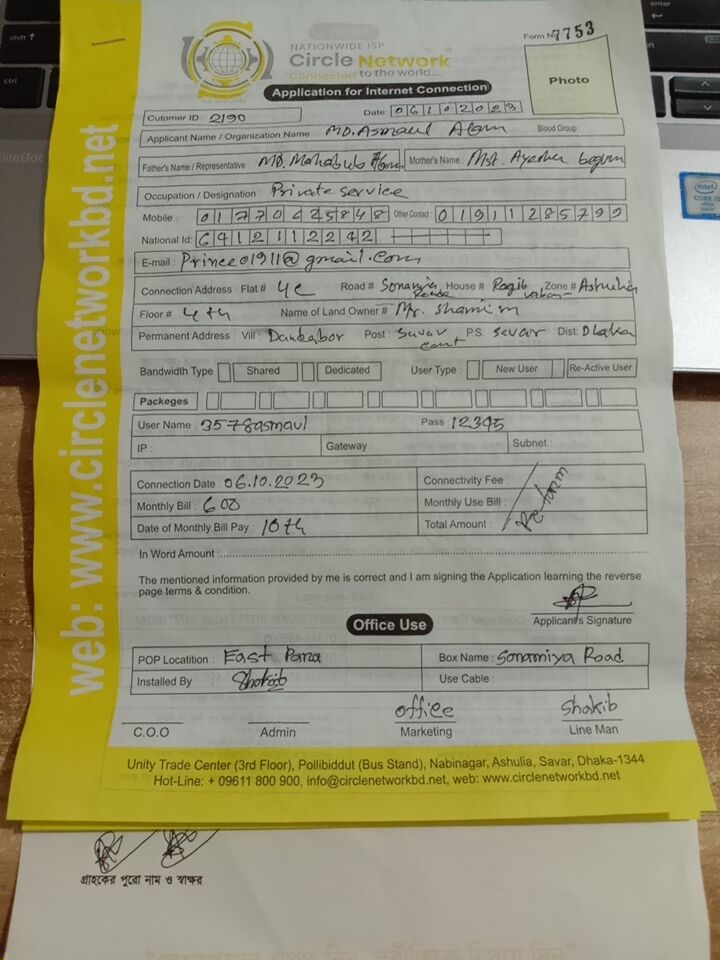 NATIONWIDE ISP
Circle Network
Connected to the world...
Form No 7753
Photo
Application for Internet Connection
Cutomer ID : 2190 Date : 06102023
Applicant Name / Organization Name : MD. Asmaul Alam Blood Group
Father's Name / Representative : MD. Mahabub Alam Mother's Name : Mst. Ayesha begum
Occupation / Designation : Private service
Mobile : 01770445848 Other Contact 01911285799
National Id: 6412112242
E-mail : Prince01911@gmail.com
Connection Address : Flat # 4c Road # Sonamia Road House # Ragib Zone # Ashulia
Floor # 4th Name of Land Owner # Mr. Shamim
Permanent Address : Vill : Dandabor Post : Savar cant P.S. Savar Dist: Dhaka
Bandwidth Type Shared Dedicated User Type : New User Re-Active User
Packeges
User Name : 3578asmaul Pass 12345
IP : Gateway : Subnet :
Connection Date : 06.10.2023 Connectivity Fee :
Monthly Bill : 600 Monthly Use Bill :
Date of Monthly Bill Pay : 10th Total Amount :
In Word Amount :
The mentioned information provided by me is correct and I am signing the Application learning the reverse
page terms & condition.
Applicant's Signature
Office Use
POP Locatition : East Para Box Name : Sonamiya Road
Installed By : Shakib Use Cable :
office Shakib
C.O.O Admin Marketing Line Man
Unity Trade Center (3rd Floor), Pollibiddut (Bus Stand), Nabinagar, Ashulia, Savar, Dhaka-1344
Hot-Line: + 09611 800 900, info@circlenetworkbd.net, web: www.circlenetworkbd.net
web: www.circlenetworkbd.net
গ্রাহকের পুরো নাম ও স্বাক্ষর